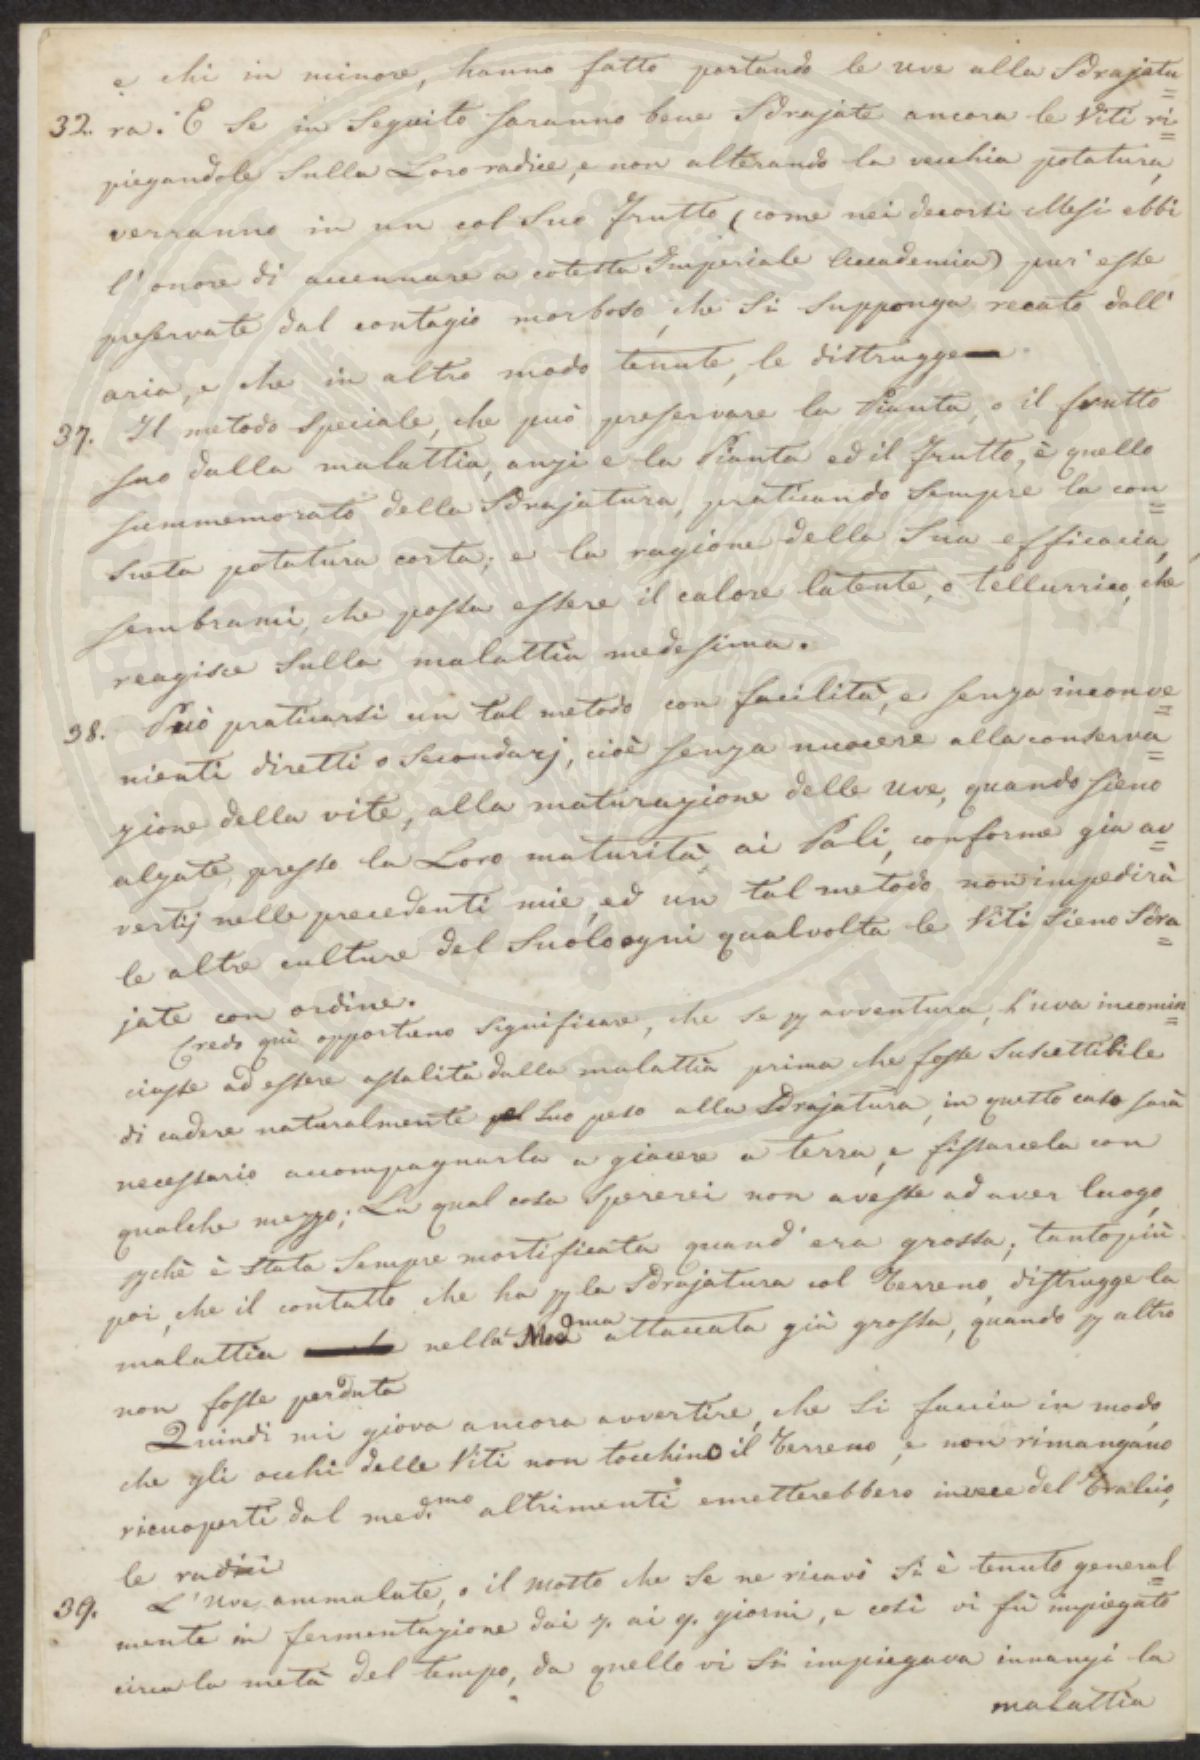 e chi in minore, hanno fatto portando le uve alla Sdrajatu=
32. ra. E Se in Seguito saranno bene Sdrajate ancora le Viti ri=
piegandole Sulla Loro radice, e non alterando la vecchia potatura,
verranno in un col Suo Frutto (come nei decorsi Mesi ebbi
l'onore di accennare a cotesta Imperiale Accademia) pur'esse
preservate dal contagio morboso, che Si Suppongа recato dall'
aria, e che in altro modo tenute, le distrugge
37. Il metodo Speciale, che può preservare la Pianta, o il frutto
suo dalla malattia, anzi e la Pianta ed il Frutto, è quello
summemorato della Sdrajatura, praticando Sempre la con=
sueta potatura corta; e la ragione della Sua efficacia,
sembrami, che possa essere il calore latente, o tellurrico, che
reagisce Sulla malattia medesima.
38. Può praticarsi un tal metodo con facilità, e senza inconve=
nienti diretti o Secondarj, cioè senza nuocere alla conserva=
zione della vite, alla maturazione delle uve, quando sieno
alzate, presso la Loro maturità, ai Pali, conforme gia av=
vertij nelle precedenti mie, ed un tal metodo non impedirà
le altre culture del Suolo ogni qualvolta le Viti Sieno Sdra=
jate con ordine.
Credo quì opportuno Significare, che se p avventura, l'uva incomin=
ciasse ad essere assalita dalla malattia prima che fosse Suscettibile
di cadere naturalmente pel Suo peso alla Sdrajatura, in questo caso sarà
necessario accompagnarla a giacere a terra, e fissarcela con
qualche mezzo; La qual cosa Spererei non avesse ad aver luogo,
pchè è Stata Sempre mortificata quand'era grossa; tantopiù
poi, che il contatto che ha p la Sdrajatura col Terreno, distrugge la
malattia nella Med.ma attaccata già grossa, quando p altro
non fosse perduta
Quindi mi giova ancora avvertire, che Si faccia in modo,
che gli occhi delle Viti non tocchino il Terreno, e non rimangano
ricuoperti dal med.mo altrimenti emetterebbero invece del Tralcio,
le radici
39. L'Uve ammalate, o il Mosto che Se ne ricavò Si è tenuto general=
mente in fermentazione dai 7. ai 9. giorni, e così vi fù impiegato
circa la metà del tempo, da quello vi Si impiegava innanzi la
malattia